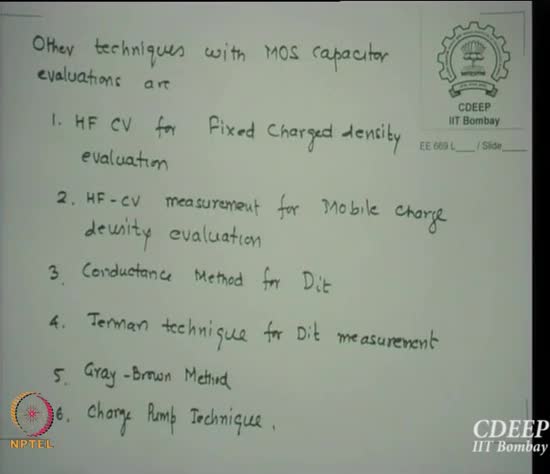 Other techniques with MOS Capacitor
evaluations are
1. HF CV for Fixed Charged density
evaluation
2. HF-CV measurement for Mobile Charge
density evaluation
3. Conductance Method for Dit
4. Terman technique for Dit measurement
5. Gray-Brown Method
6. Charge Pump Technique.
CDEEP
IIT Bombay
EE 669 L____ / Slide____
NPTEL
CDEEP
IIT Bombay